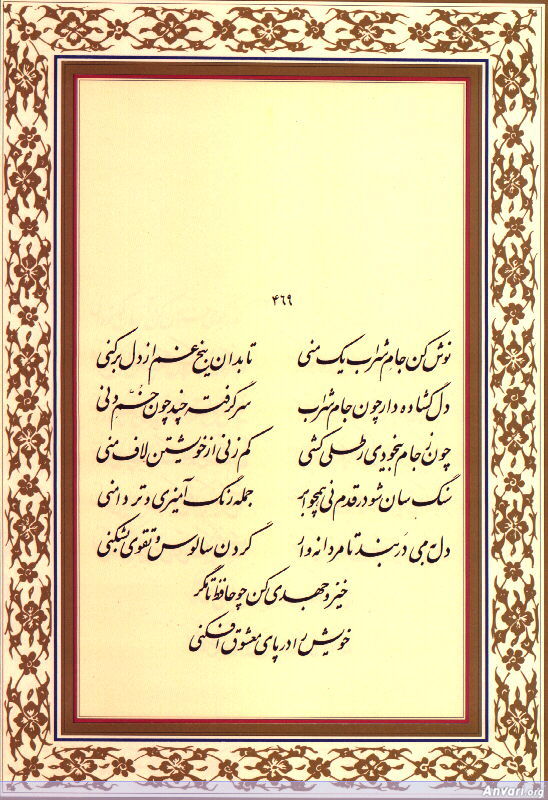 ۴۶۹
نوش کن جام شراب یک منی تا بدان بیخ غم از دل برکنی
دل گشاده دار چون جام شراب سر گرفته چند چون خم دنی
چون ز جام بیخودی رطلی کشی کم زنی از خویشتن لاف منی
سنگ سان شو در قدم نی همچو ابر جمله رنگ آمیزی و تر دامنی
دل به می دربند تا مردانه وار گردن سالوس و تقوی بشکنی
خیز و جهدی کن چو حافظ تا مگر
خویش را در پای معشوق افکنی
Anvari.org